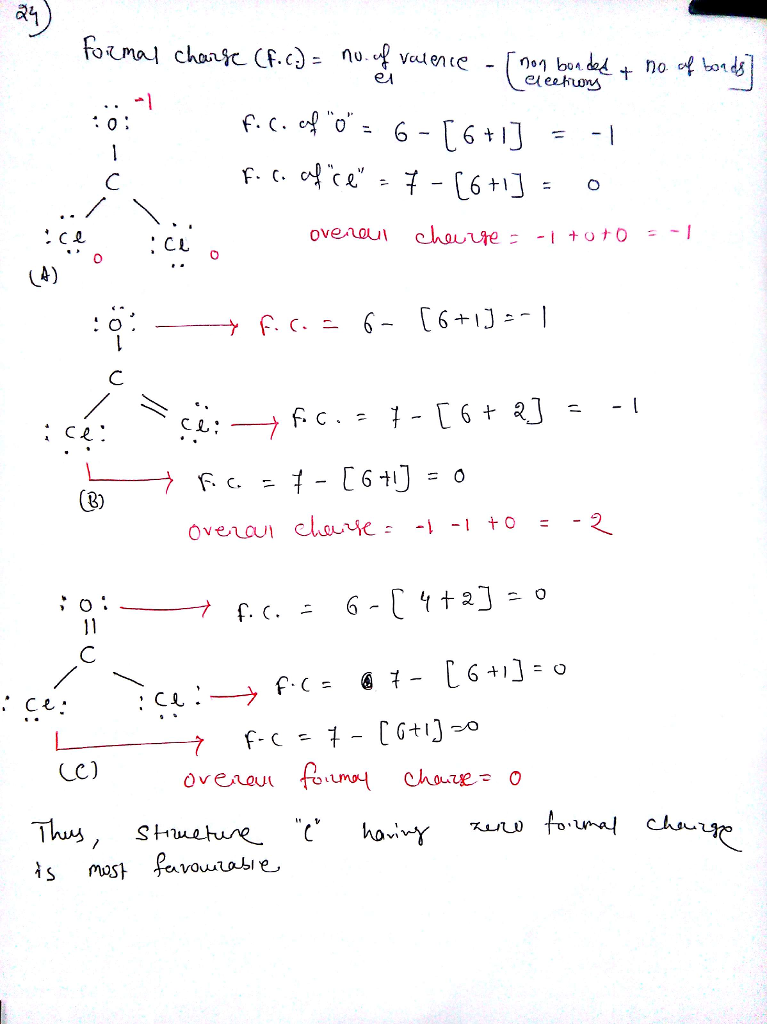 24)
Formal charge (F.C.) = no. of valence el - [non bonded electrons + no. of bonds]
:Ö: -1
F.C. of "O" = 6 - [6+1] = -1
C
F.C. of "Cl" = 7 - [6+1] = 0
:Cl 0 :Cl 0
overall charge = -1 + 0 + 0 = -1
(A)
:Ö: → F.C. = 6 - [6+1] = -1
C
:Cl: Cl: → F.C. = 7 - [6+2] = -1
→ F.C. = 7 - [6+1] = 0
(B)
overall charge = -1 -1 +0 = -2
:O: → F.C. = 6 - [4+2] = 0
C
:Cl: :Cl: → F.C = 7 - [6+1] = 0
→ F.C = 7 - [6+1] = 0
(C)
overall formal charge = 0
Thus, structure "C" having zero formal charge
is most favourable